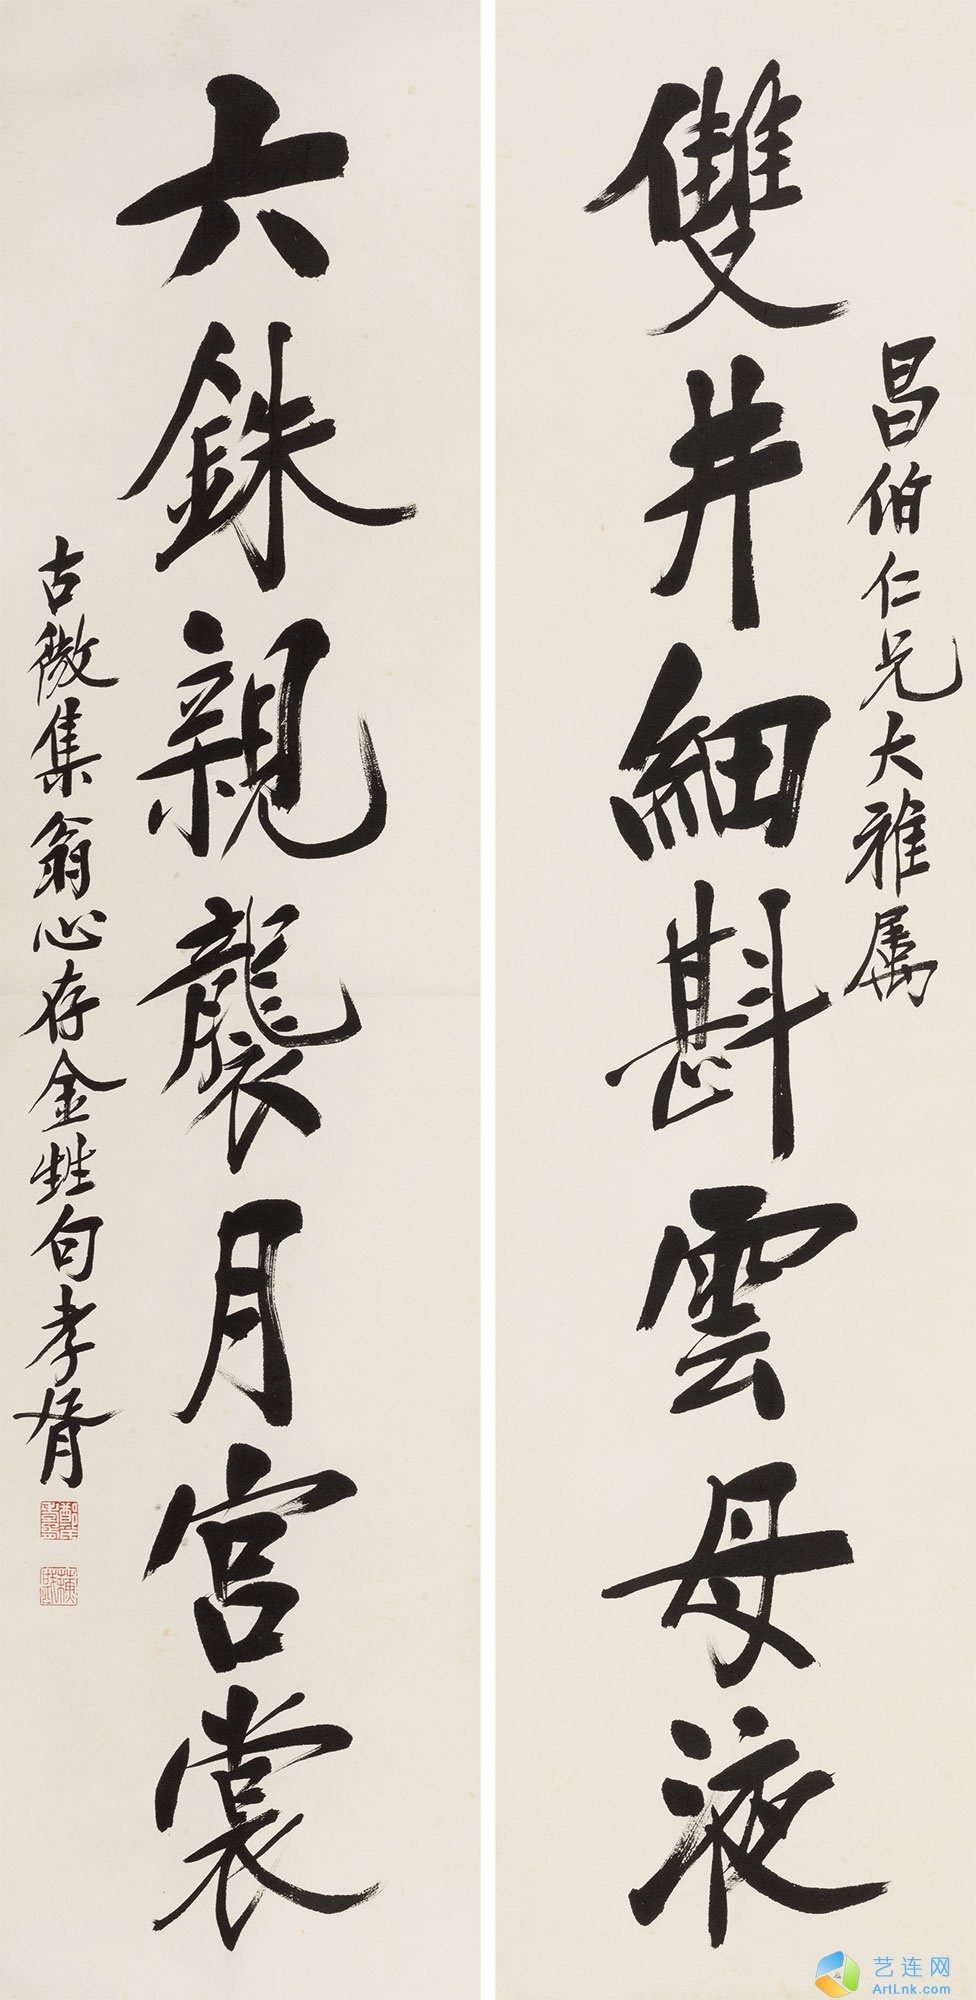 昌伯仁兄大雅属
雙井細斟雲母液
六銖親襲月宮裳
古微集翁心存金甡句孝胥
艺连网
ArtLnk.com